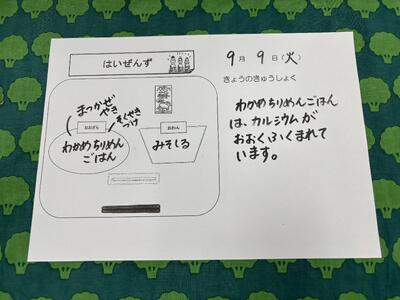 はいぜんず
9月9日(火)
きょうのきゅうしょく
まつかぜ
やき
そくせき
づけ
おおざら
おわん
わかめちりめん
ごはん
みそしる
わかめちりめんごはん
は、カルシウムが
おおくふくまれて
います。